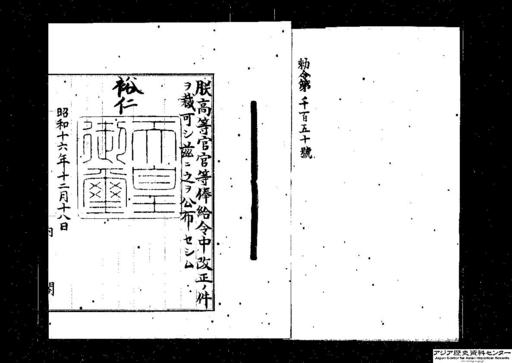 勅令第千百五十號
朕高等官官等俸給令中改正ノ件
ヲ裁可シ茲ニ之ヲ公布セシム
裕仁
天皇御璽
昭和十六年十二月十八日
内閣
アジア歴史資料センター
Japan Center for Asian Historical Records